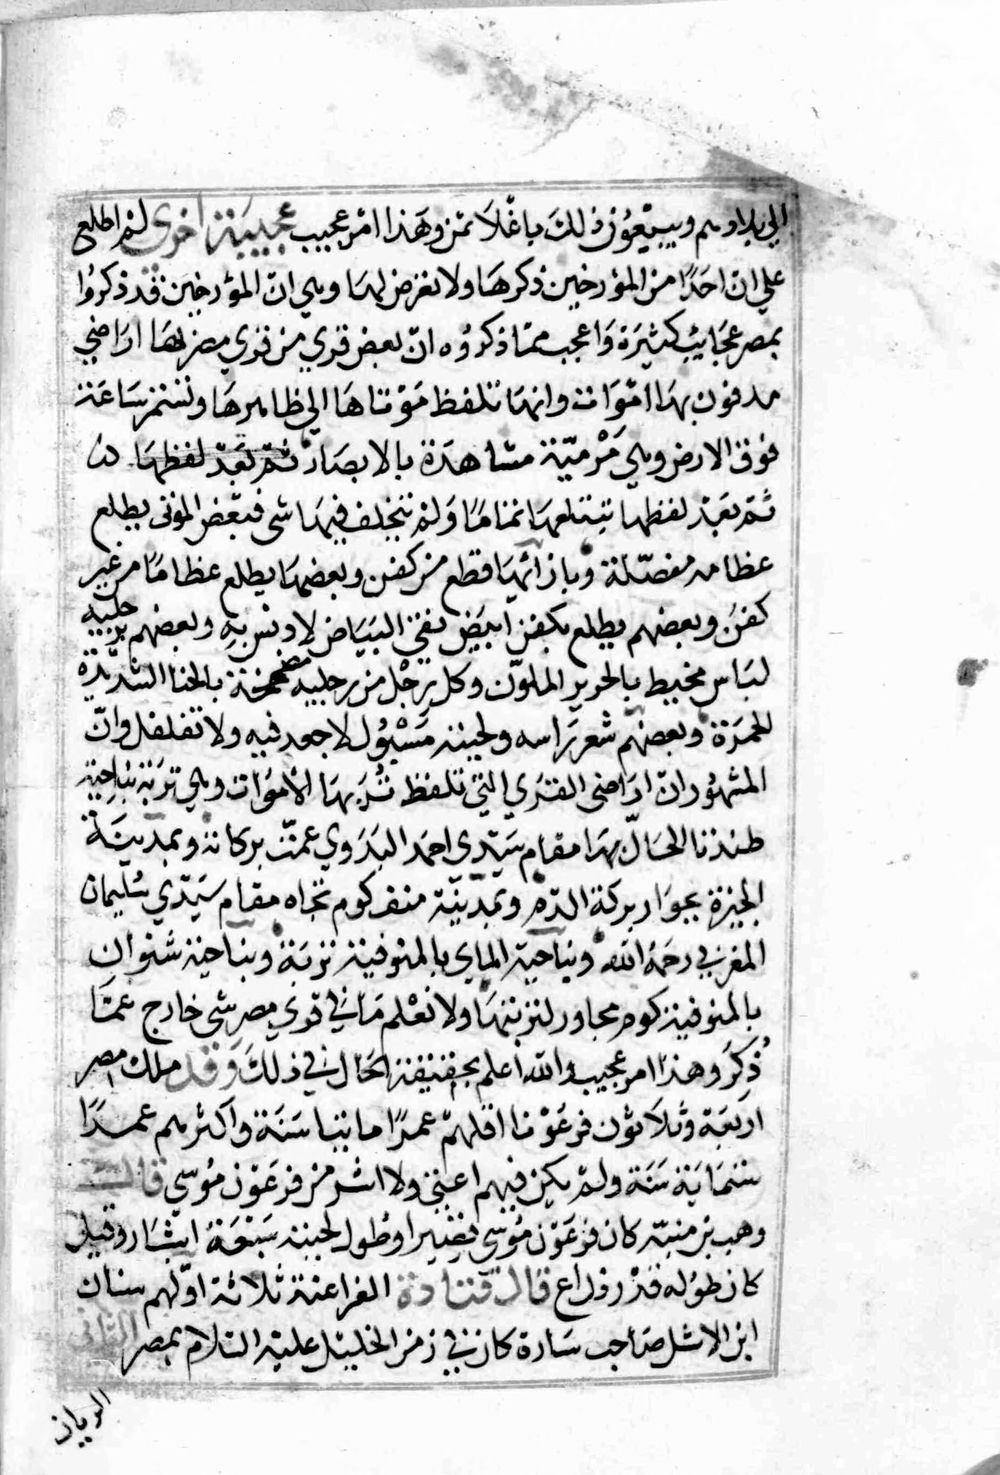 الي بلادهم ويبيعون ذلك باغلا ثمن وهذا امر عجيب عجيبة اخري لم اطلع
علي ان احدًا من المؤرخين ذكرها ولا تعرض لها وهي ان المؤرخين قد ذكروا
بمصر عجايب كثيرة واعجب مما ذكروه ان بعض قري من قري مصر لها اراضي
مدفون بها اموات وانها تلفظ موتاها الي ظاهرها وتستمر ساعة
فوق الارض وهي مرمية مشاهدة بالابصار ثم بعد لفظها
ثم بعد لفظها تبتلعها تماما ولم يتخلف فيها شي فبعض الموتى يطلع
عظامه مفصلة وبازائها قطع من كفن وبعضها يطلع عظامًا من غير
كفن وبعضهم يطلع بكفن ابيض نقي البياض لا دنس به وبعضهم برجليه
لباس مخيط بالحرير الملون وكل رجل من رجليه مضمخة بالحنا الشديدة
الحمرة وبعضهم شعر راسه ولحيته مسبول لا جعد فيه ولا تفلفل وان
المشهور ان اراضي القري التي تلفظ تربها الاموات وهي تربة بناحية
طندتا الحال بها مقام سيدي احمد البدوي عمت بركاته وبمدينة
الجيزة بجوار بركة الدم وبمدينة منف كوم تجاه مقام سيدي سليمان
المغربي رحمه الله وبناحية الماي بالمنوفية تربة وبناحية شنوان
بالمنوفية كوم مجاور لتربتها ولا نعلم ما في قري مصر شي خارج عما
ذكر وهذا امر عجيب والله اعلم بحقيقة الحال في ذلك وقد ملك مصر
اربعة وثلاثون فرعونا اقلهم عمرًا مايتا سنة واكثرهم عمرًا
ستماية سنة ولم يكن فيهم اعتى ولا اشر من فرعون موسي قال
وهب بن منبه كان فرعون موسي قصيرا وطول لحيته سبعة اشبار وقيل
كان طوله قدر ذراع قال قتادة الفراعنة ثلاثة اولهم سنان
ابن الاشل صاحب سارة كان في زمن الخليل عليه السلام بمصر الثاني
الريان